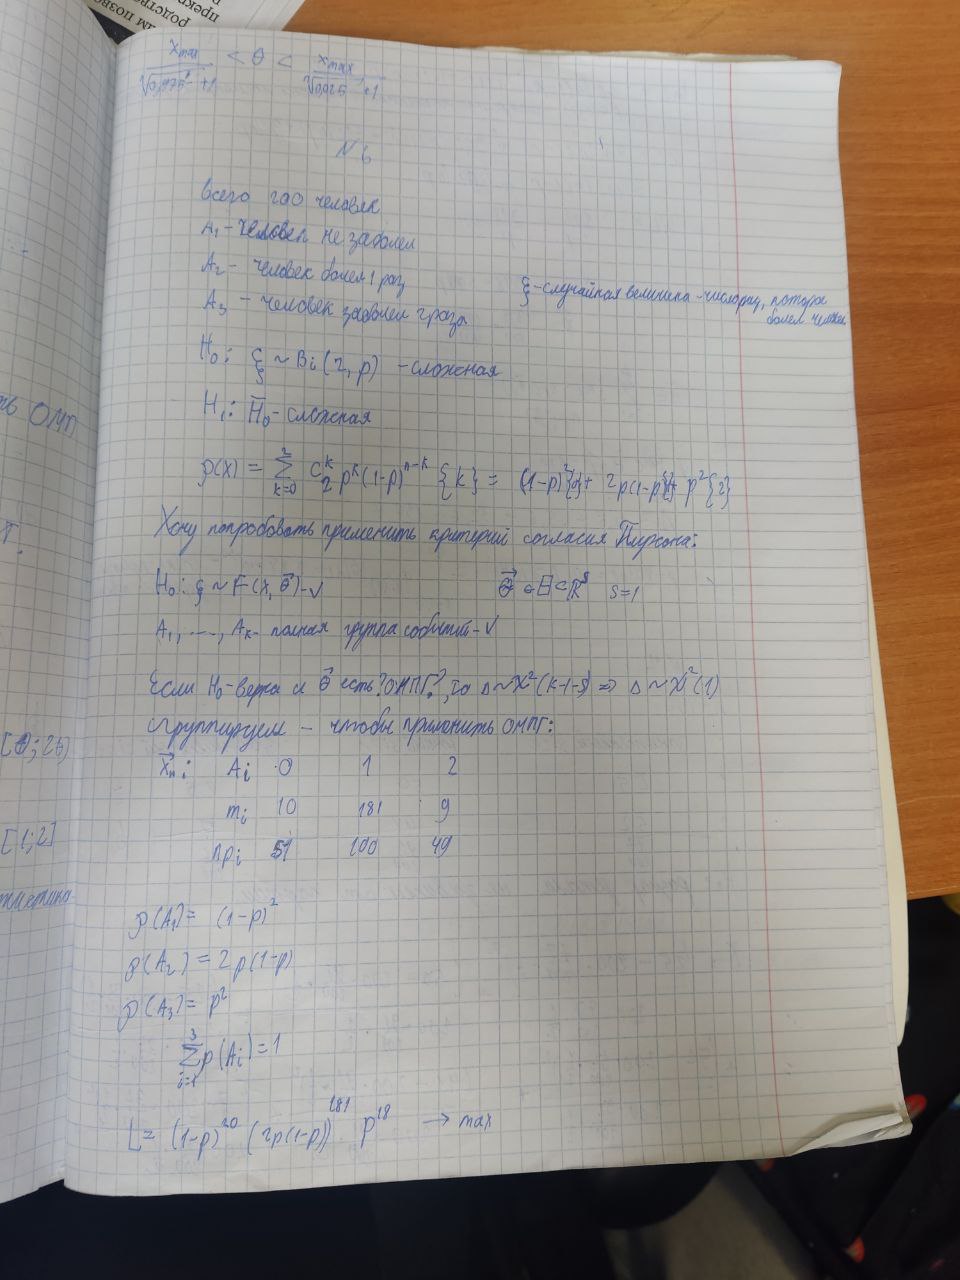 прекра
родстве
ам позво
x_max / ⁿ√(0,975) +1 < θ < x_max / ⁿ√(0,025) +1
N 6
Всего 200 человек
A₁ - человек не заболел
A₂ - человек болел 1 раз
A₃ - человек заболел 2 раза
ξ - случайная величина - число раз, которое болел человек
H₀: ξ ~ Bi(2, p) - сложная
H₁: H̄₀ - сложная
p(x) = Σ_{k=0}^{2} C₂ᵏ pᵏ(1-p)ⁿ⁻ᵏ {k} = (1-p)²{0}+ 2p(1-p){1}+ p²{2}
Хочу попробовать применить критерий согласия Пирсона:
H₀: ξ ~ F(x, θ⃗) - √
θ⃗ ∈ Θ ⊂ ℝˢ s=1
A₁, ...., Aₖ - полная группа событий - √
Если H₀ - верна и θ⃗ есть? ОМПГ?, то Δ ~ χ²(k-1-s) ⇒ Δ ~ χ²(1)
Группируем - чтобы применить ОМПГ:
x⃗ₙ: Aᵢ 0 1 2
mᵢ 10 181 9
npᵢ 51 100 49
p(A₁) = (1-p)²
p(A₂) = 2p(1-p)
p(A₃) = p²
Σ_{i=1}^{3} p(Aᵢ) = 1
L = (1-p)²⁰ (2p(1-p))¹⁸¹ p¹⁸ → max
ОМП
[θ; 2θ]
[1; 2]